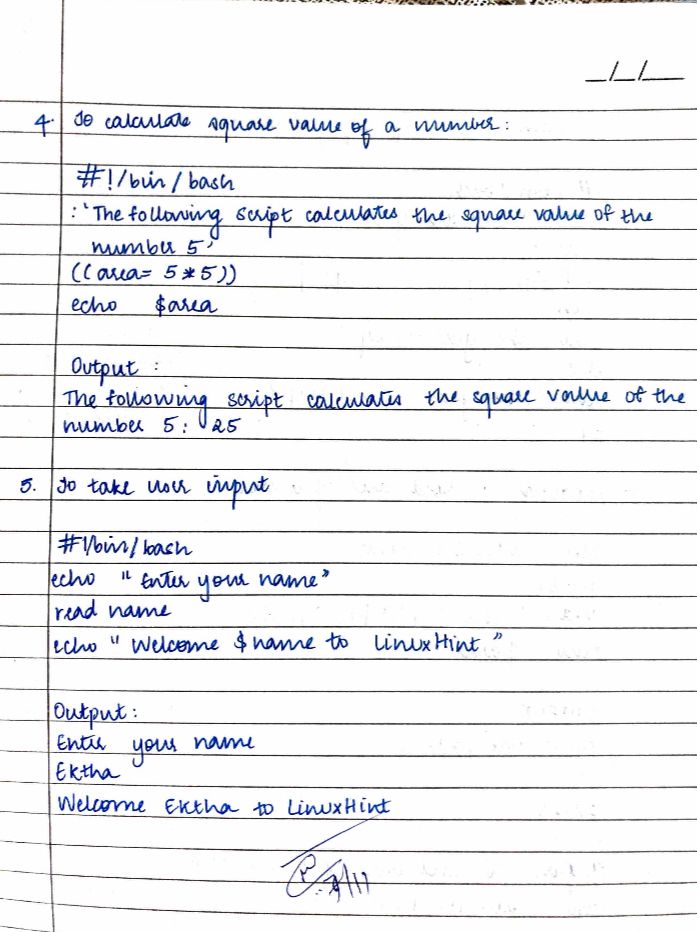 _/_/_
4. To calculate square value of a number:
#!/bin/bash
:'The following script calculates the square value of the
number 5'
((area= 5*5))
echo $area
Output :
The following script calculates the square value of the
number 5: 25
5. To take user input
#!/bin/bash
echo "Enter your name"
read name
echo "Welcome $name to LinuxHint"
Output:
Enter your name
Ektha
Welcome Ektha to LinuxHint